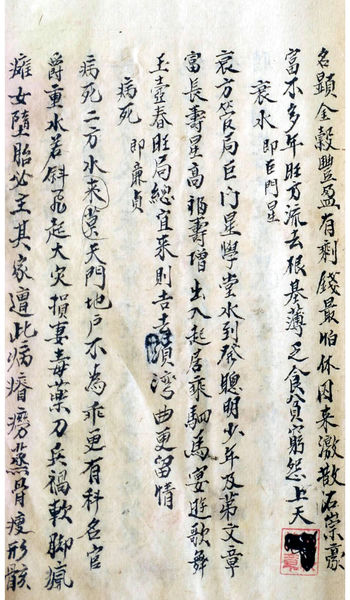 名顯金穀豐盈有剩錢最怕休囚来激散沾崇豪
富不多年旺方流去根基薄乏食貧窮怨上天
衰水 即巨门星
衰方管局巨门星學堂水到發聰明少年及第文章
富長壽星高福壽增出入起居乘駟馬宴遊歌舞
玉壺春旺局總宜来則吉去須灣曲更留情
病死 即廉貞
病死二方水来莫天門地户不為乖更有科名官
爵重水若斜飛起大灾損妻毒藥刀兵禍軟脚瘋
癱女墮胎必主其家遭此病癆蒸骨瘦形骸